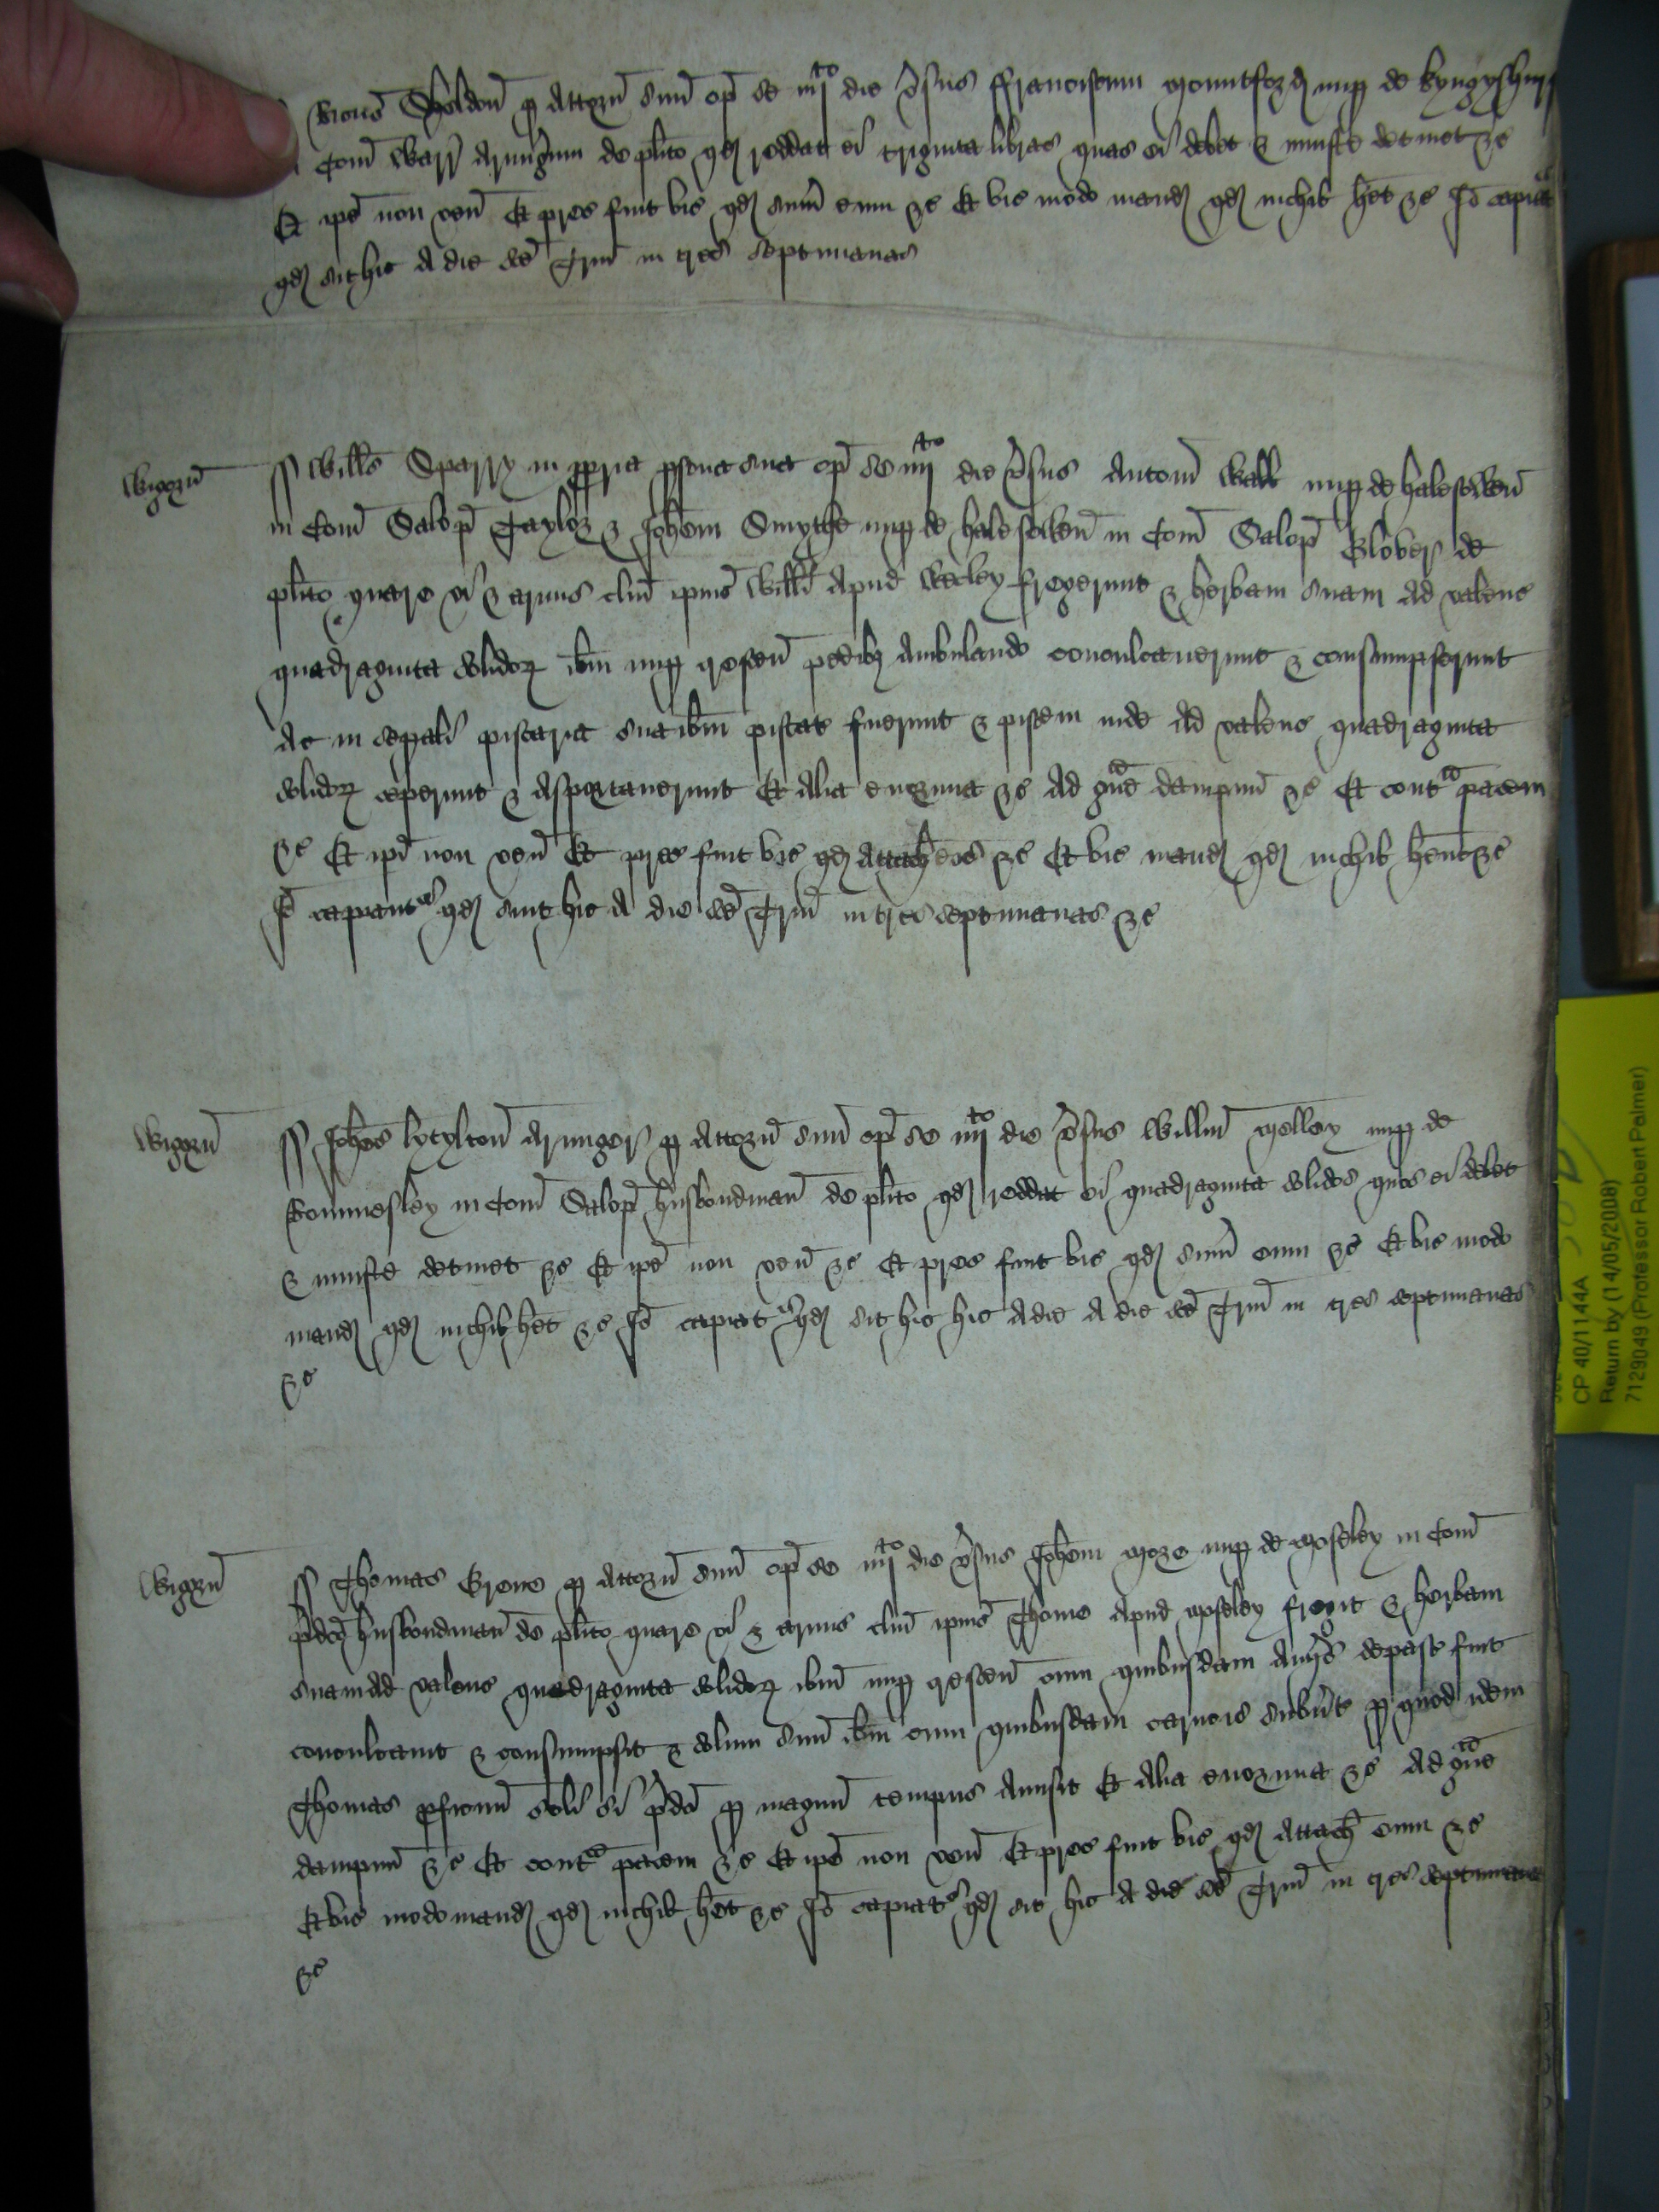 Sheldon p Attorn suu op se iiijto die vsus Franciscum Mountford nup de Kyngyshurst
Com Warr Armigum de plito qd reddat ei triginta libras quas ei debet & iniuste detinet &c
Et ipe non ven Et prec fuit vic qd sum eum &c Et vic modo mand qd nichil het &c Io capiat
qd sit hic A die sce Trin in tres septimanas
Wigorn
ss Wills Sparry in ppria psona sua op se iiijto die vsus Antoniu Wall nup de halesowen
in Com Salop Taylor & Johem Smythe nup de halesowen in Com Salop Glover de
plito quare vi & armis clm ipius Willi Apud fregerunt & herbam suam Ad valenc
quadraginta solidor ibm nup crescen pedibz Ambulando conculcauerunt & consumpserunt
Ac in sepali piscaria sua ibm piscat fuerunt & piscem inde Ad valenc quadraginta
solidor ceperunt & Asportauerunt Et Alia enormia &c Ad gue dampnu &c Et contra pacem
&c Et ipi non ven Et prec fuit vic qd Attach eos &c Et vic mand qd nichil hent &c
Io capiant qd sint hic A die sce Trin in tres septimanas &c
Wigorn
ss Johes lytylton Armiger p Attorn suu op se iiijto die vsus Willm Melley nup de
Rommesley in Com Salop husbondman de plito qd reddat ei quadraginta solidos quos ei debet
& iniuste detinet &c Et ipe non ven &c Et prec fuit vic qd sum eum &c Et vic modo
mand qd nichil het &c Io capiat qd sit hic hic A die A die sce Trin in tres septimanas
&c
Wigorn
ss Thomas Grene p Attorn suu op se iiijto die vsus Johem More nup de Moseley in Com
pdco husbondman de plito quare vi & armis clm ipius Thome Apud Moseley fregit & herbam
suam Ad valenc quadraginta solidor ibm nup crescen cum quibusdam Auijs depast fuit
conculcauit & consumpsit & solum suu ibm cum quibusdam carucis subuertit p quod idem
Thomas pficuu soli sui pdci p magnu tempus Amisit Et Alia enormia &c Ad gue
dampnu &c Et contra pacem &c Et ipe non ven Et prec fuit vic qd Attach eum &c
Et vic modo mand qd nichil het &c Io capiat qd sit hic A die sce Trin in tres septimanas
&c
CP 40/1144A
Return by (14/05/2008)
7129049 (Professor Robert Palmer)